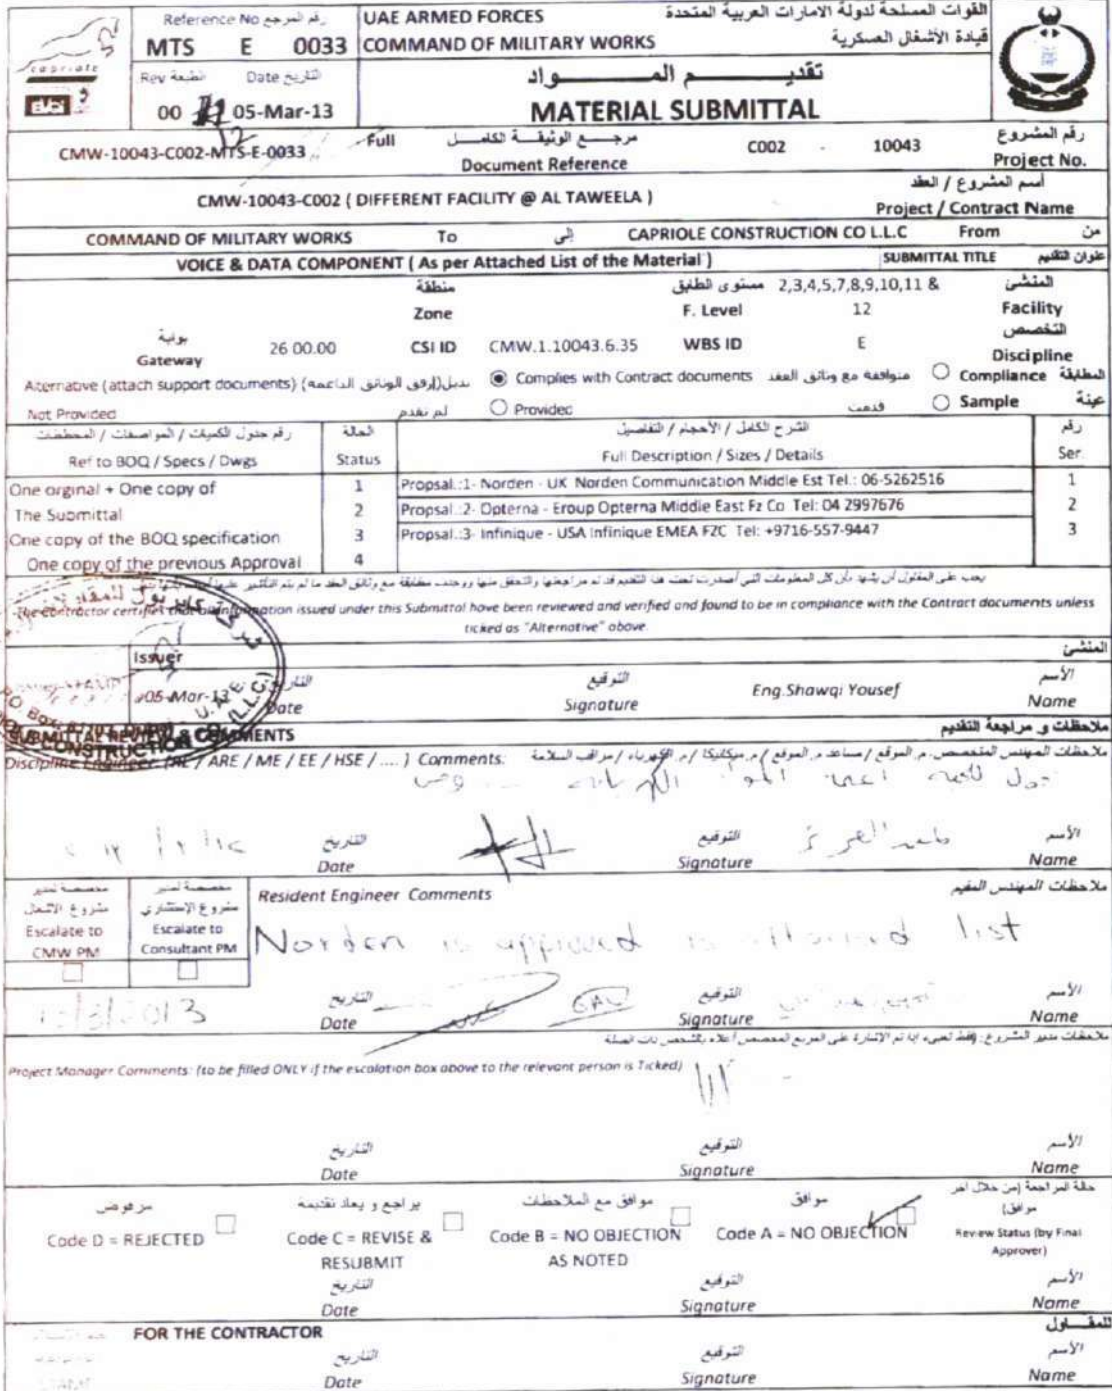 Reference No رقم المرجع
UAE ARMED FORCES
القوات المسلحة لدولة الامارات العربية المتحدة
MTS E 0033
COMMAND OF MILITARY WORKS
قيادة الأشغال العسكرية
capriole
Rev الطبعة Date التاريخ
تقديـــم المـــواد
00 05-Mar-13
MATERIAL SUBMITTAL
CMW-10043-C002-MTS-E-0033
Full مرجـــع الوثيقـــة الكامـــل
Document Reference
C002 - 10043
رقم المشروع
Project No.
CMW-10043-C002 ( DIFFERENT FACILITY @ AL TAWEELA )
أسم المشروع / العقد
Project / Contract Name
COMMAND OF MILITARY WORKS To إلى CAPRIOLE CONSTRUCTION CO L.L.C From من
VOICE & DATA COMPONENT ( As per Attached List of the Material ) SUBMITTAL TITLE عنوان التقديم
منطقة
Zone
مستوى الطابق 2,3,4,5,7,8,9,10,11 &
F. Level 12
المنشئ
Facility
بوابة
Gateway
26 00.00 CSI ID CMW.1.10043.6.35 WBS ID E
التخصص
Discipline
Alternative (attach support documents) بديل(إرفق الوثائق الداعمه) Complies with Contract documents متوافقة مع وثائق العقد Compliance المطابقة
Not Provided لم تقدم Provided قدمت Sample عينة
رقم جدول الكميات / المواصفات / المخططات
Ref to BOQ / Specs / Dwgs
الحالة
Status
الشرح الكامل / الأحجام / التفاصيل
Full Description / Sizes / Details
رقم
Ser.
One orginal + One copy of 1 Propsal.:1- Norden - UK Norden Communication Middle Est Tel.: 06-5262516 1
The Submittal 2 Propsal.:2- Opterna - Eroup Opterna Middle East Fz Co Tel: 04 2997676 2
One copy of the BOQ specification 3 Propsal.:3- Infinique - USA Infinique EMEA FZC Tel: +9716-557-9447 3
One copy of the previous Approval 4
The Contractor certifies that all information issued under this Submittal have been reviewed and verified and found to be in compliance with the Contract documents unless
ticked as "Alternative" above.
المنشئ
Issuer
05-Mar-13
التاريخ
Date
التوقيع
Signature
Eng.Shawqi Yousef
الأسم
Name
SUBMITTAL REVIEW & COMMENTS ملاحظات و مراجعة التقديم
Discipline Engineer (RE / ARE / ME / EE / HSE / .... ) Comments: ملاحظات المهندس المتخصص م الموقع / مساعد م الموقع / م ميكانيكا / م الكهرباء / مراقب السلامة
التاريخ
Date
التوقيع
Signature
الأسم
Name
مخصصة لمدير
مشروع الأشغال
Escalate to
CMW PM
مخصصة لمدير
مشروع الإستشاري
Escalate to
Consultant PM
Resident Engineer Comments ملاحظات المهندس المقيم
Norden is approved list
/3/2013
التاريخ
Date
التوقيع
Signature
الأسم
Name
Project Manager Comments: (to be filled ONLY if the escalation box above to the relevant person is Ticked)
التاريخ
Date
التوقيع
Signature
الأسم
Name
مرفوض
Code D = REJECTED
يراجع و يعاد تقديمة
Code C = REVISE &
RESUBMIT
موافق مع الملاحظات
Code B = NO OBJECTION
AS NOTED
موافق
Code A = NO OBJECTION
حالة المراجعة (من خلال اخر
موافق)
Review Status (by Final
Approver)
التاريخ
Date
التوقيع
Signature
الأسم
Name
FOR THE CONTRACTOR للمقـــاول
التاريخ
Date
التوقيع
Signature
الأسم
Name